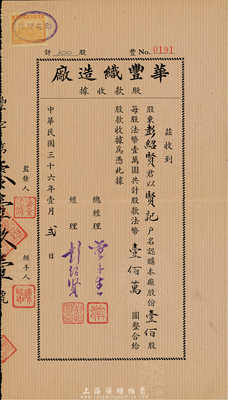 計 100 股
豐 No. 0191
華豐織造廠
股款收據
茲收到
股東彭紹賢君以賢記户名認購本廠股份壹佰股
每股法幣壹萬圓共計股款法幣壹佰萬圓整合給
股款收據爲憑此據
總經理
經理 彭紹賢
中華民國三十六年壹月弍日
監發人
經手人
上海陽明拍賣